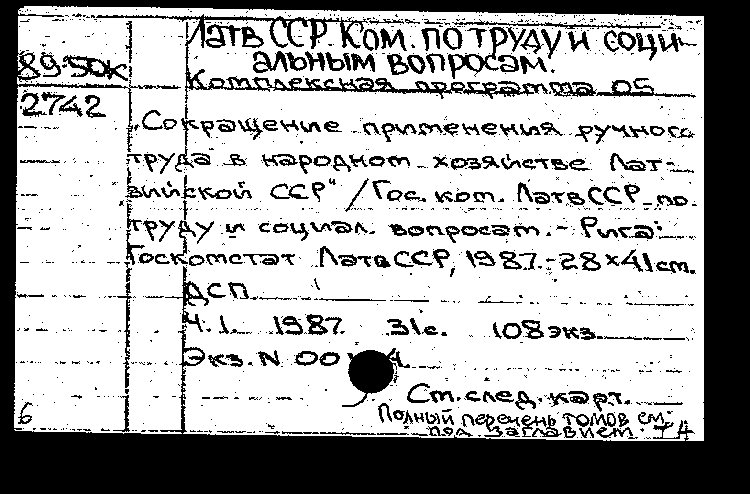 Латв ССР. Ком. по труду и соци-
альным вопросам.
89-50к
Комплексная программа 05
2742
„Сокращение применения ручного
труда в народном хозяйстве Лат-
вийской ССР" / Гос. ком. ЛатвССР по
труду и социал. вопросам. - Рига:
Госкомстат ЛатвССР, 1987.-28×41см.
ДСП
Ч.1. 1987. 31с. 108экз.
Экз. N 00
Ст. след. карт.
6
Полный перечень томов см.
под заглавием.